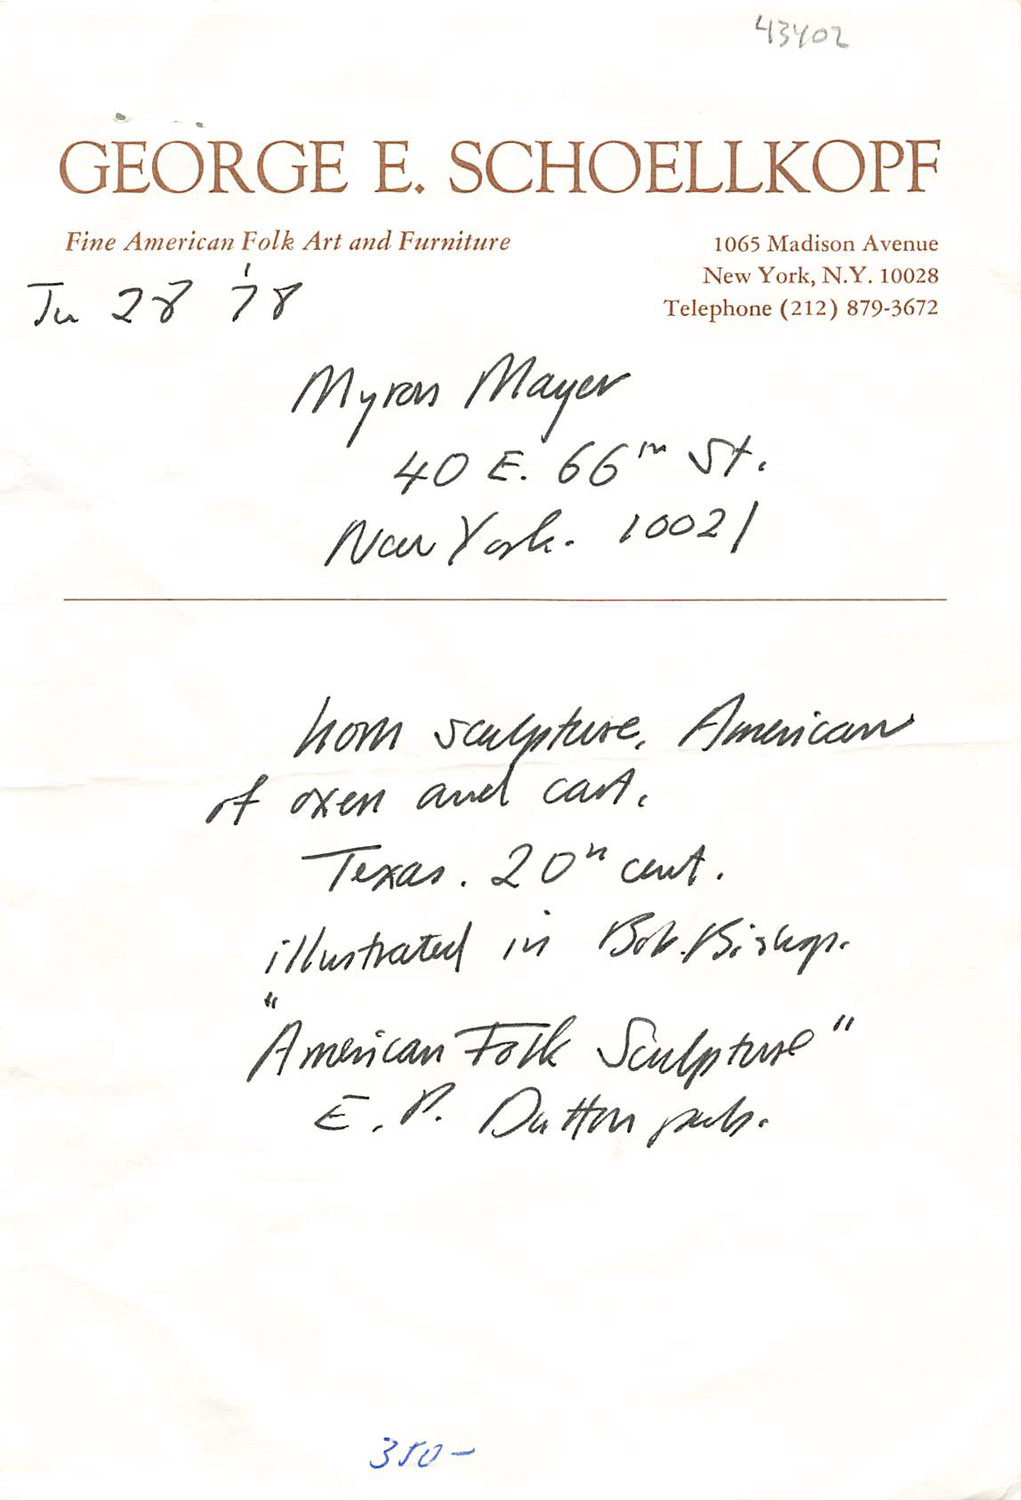 43402
GEORGE E. SCHOELLKOPF
Fine American Folk Art and Furniture
1065 Madison Avenue
New York, N.Y. 10028
Telephone (212) 879-3672
Ju 28 '78
Myron Mayer
40 E. 66th St.
New York. 10021
horn sculpture, American
of oxen and cart.
Texas. 20th cent.
illustrated in Bob. Bishop.
"American Folk Sculpture"
E. P. Dutton pub.
350-